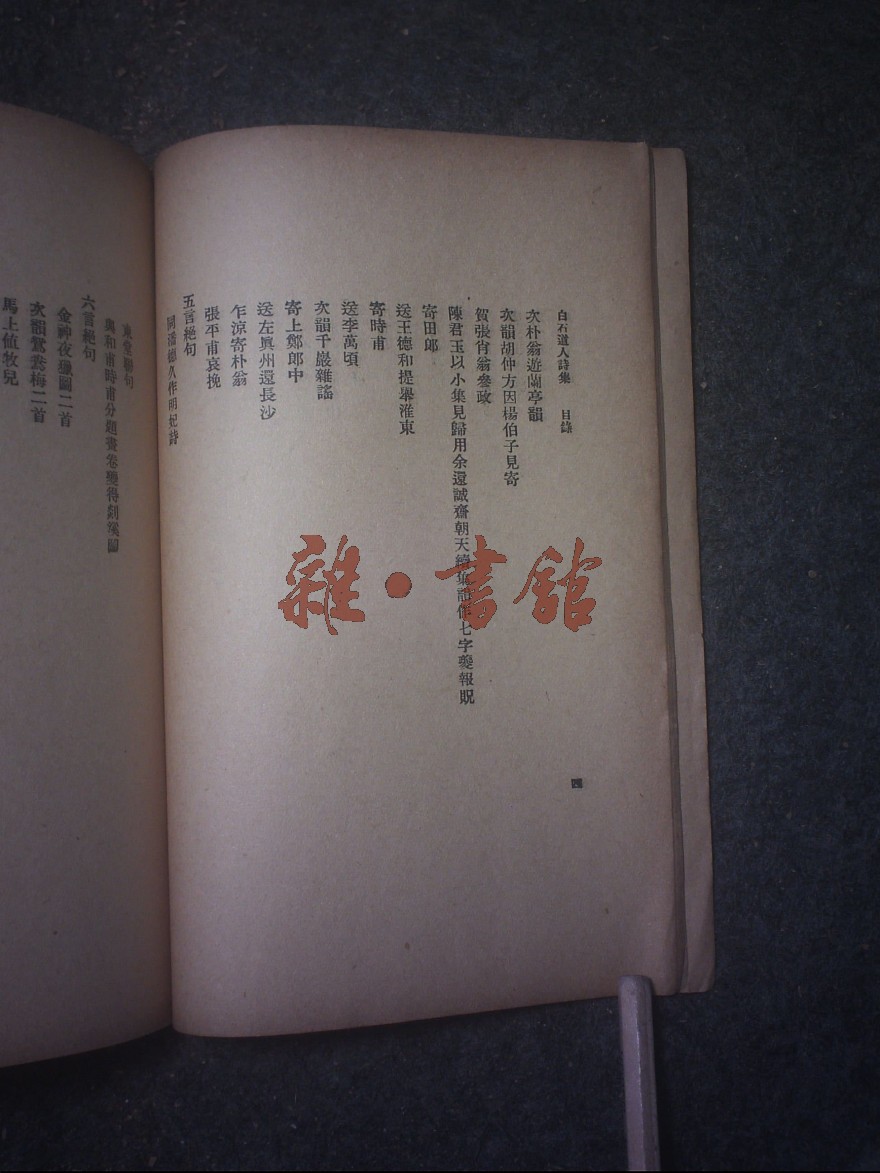 白石道人詩集 目錄
次朴翁遊蘭亭韻
次韻胡仲方因楊伯子見寄
賀張肖翁參政
陳君玉以小集見歸用余還誠齋朝天續集韻作七字夔報貺
寄田郎
送王德和提舉淮東
寄時甫
送李萬頃
次韻千巖雜謠
寄上鄭郎中
送左興州還長沙
乍涼寄朴翁
張平甫哀挽
五言絕句
同潘德久作明妃詩
四
聯句
與和甫時甫分題畫卷得剡溪圖
六言絕句
金神夜獵圖二首
次韻鴛鴦梅二首
馬上値牧兒
雜·書館